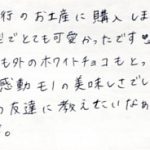 行のお土産に購入しま
でとても可愛かったです♥
も外のホワイトチョコもとっ
感動モノの美味しさでし
の友達に教えたいなぁ
。